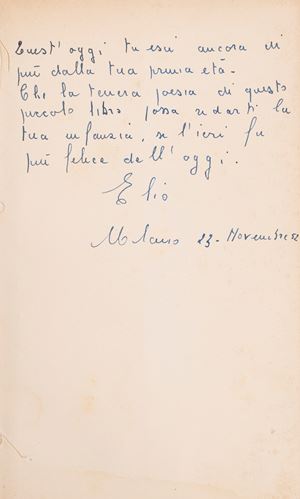 Quest'oggi tu esci ancora di
più dalla tua prima età.
Che la tenera poesia di questo
piccolo libro possa ridarti la
tua infanzia, se l'ieri fu
più felice dell'oggi.
Elio
Milano 23. Novembre